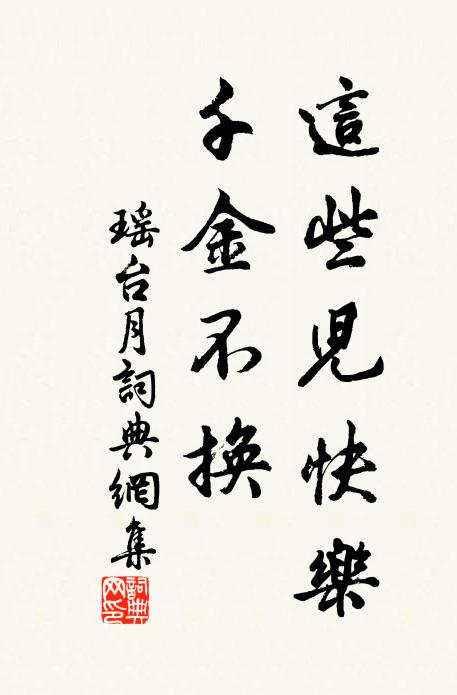 這些兒快樂
千金不換
瑶台月詞典網集
詞典网印